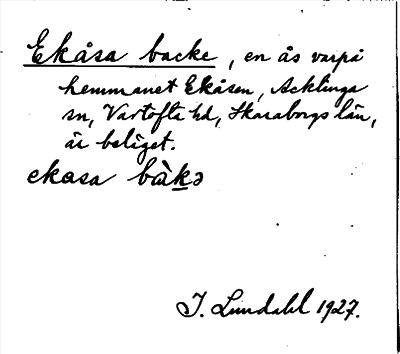 Ekåsa backe, en ås varpå
hemmanet Ekåsen, Acklinga
sn, Vartofta hd, Skaraborgs län,
är beläget.
ekasa bàkə
I. Lundahl 1927.